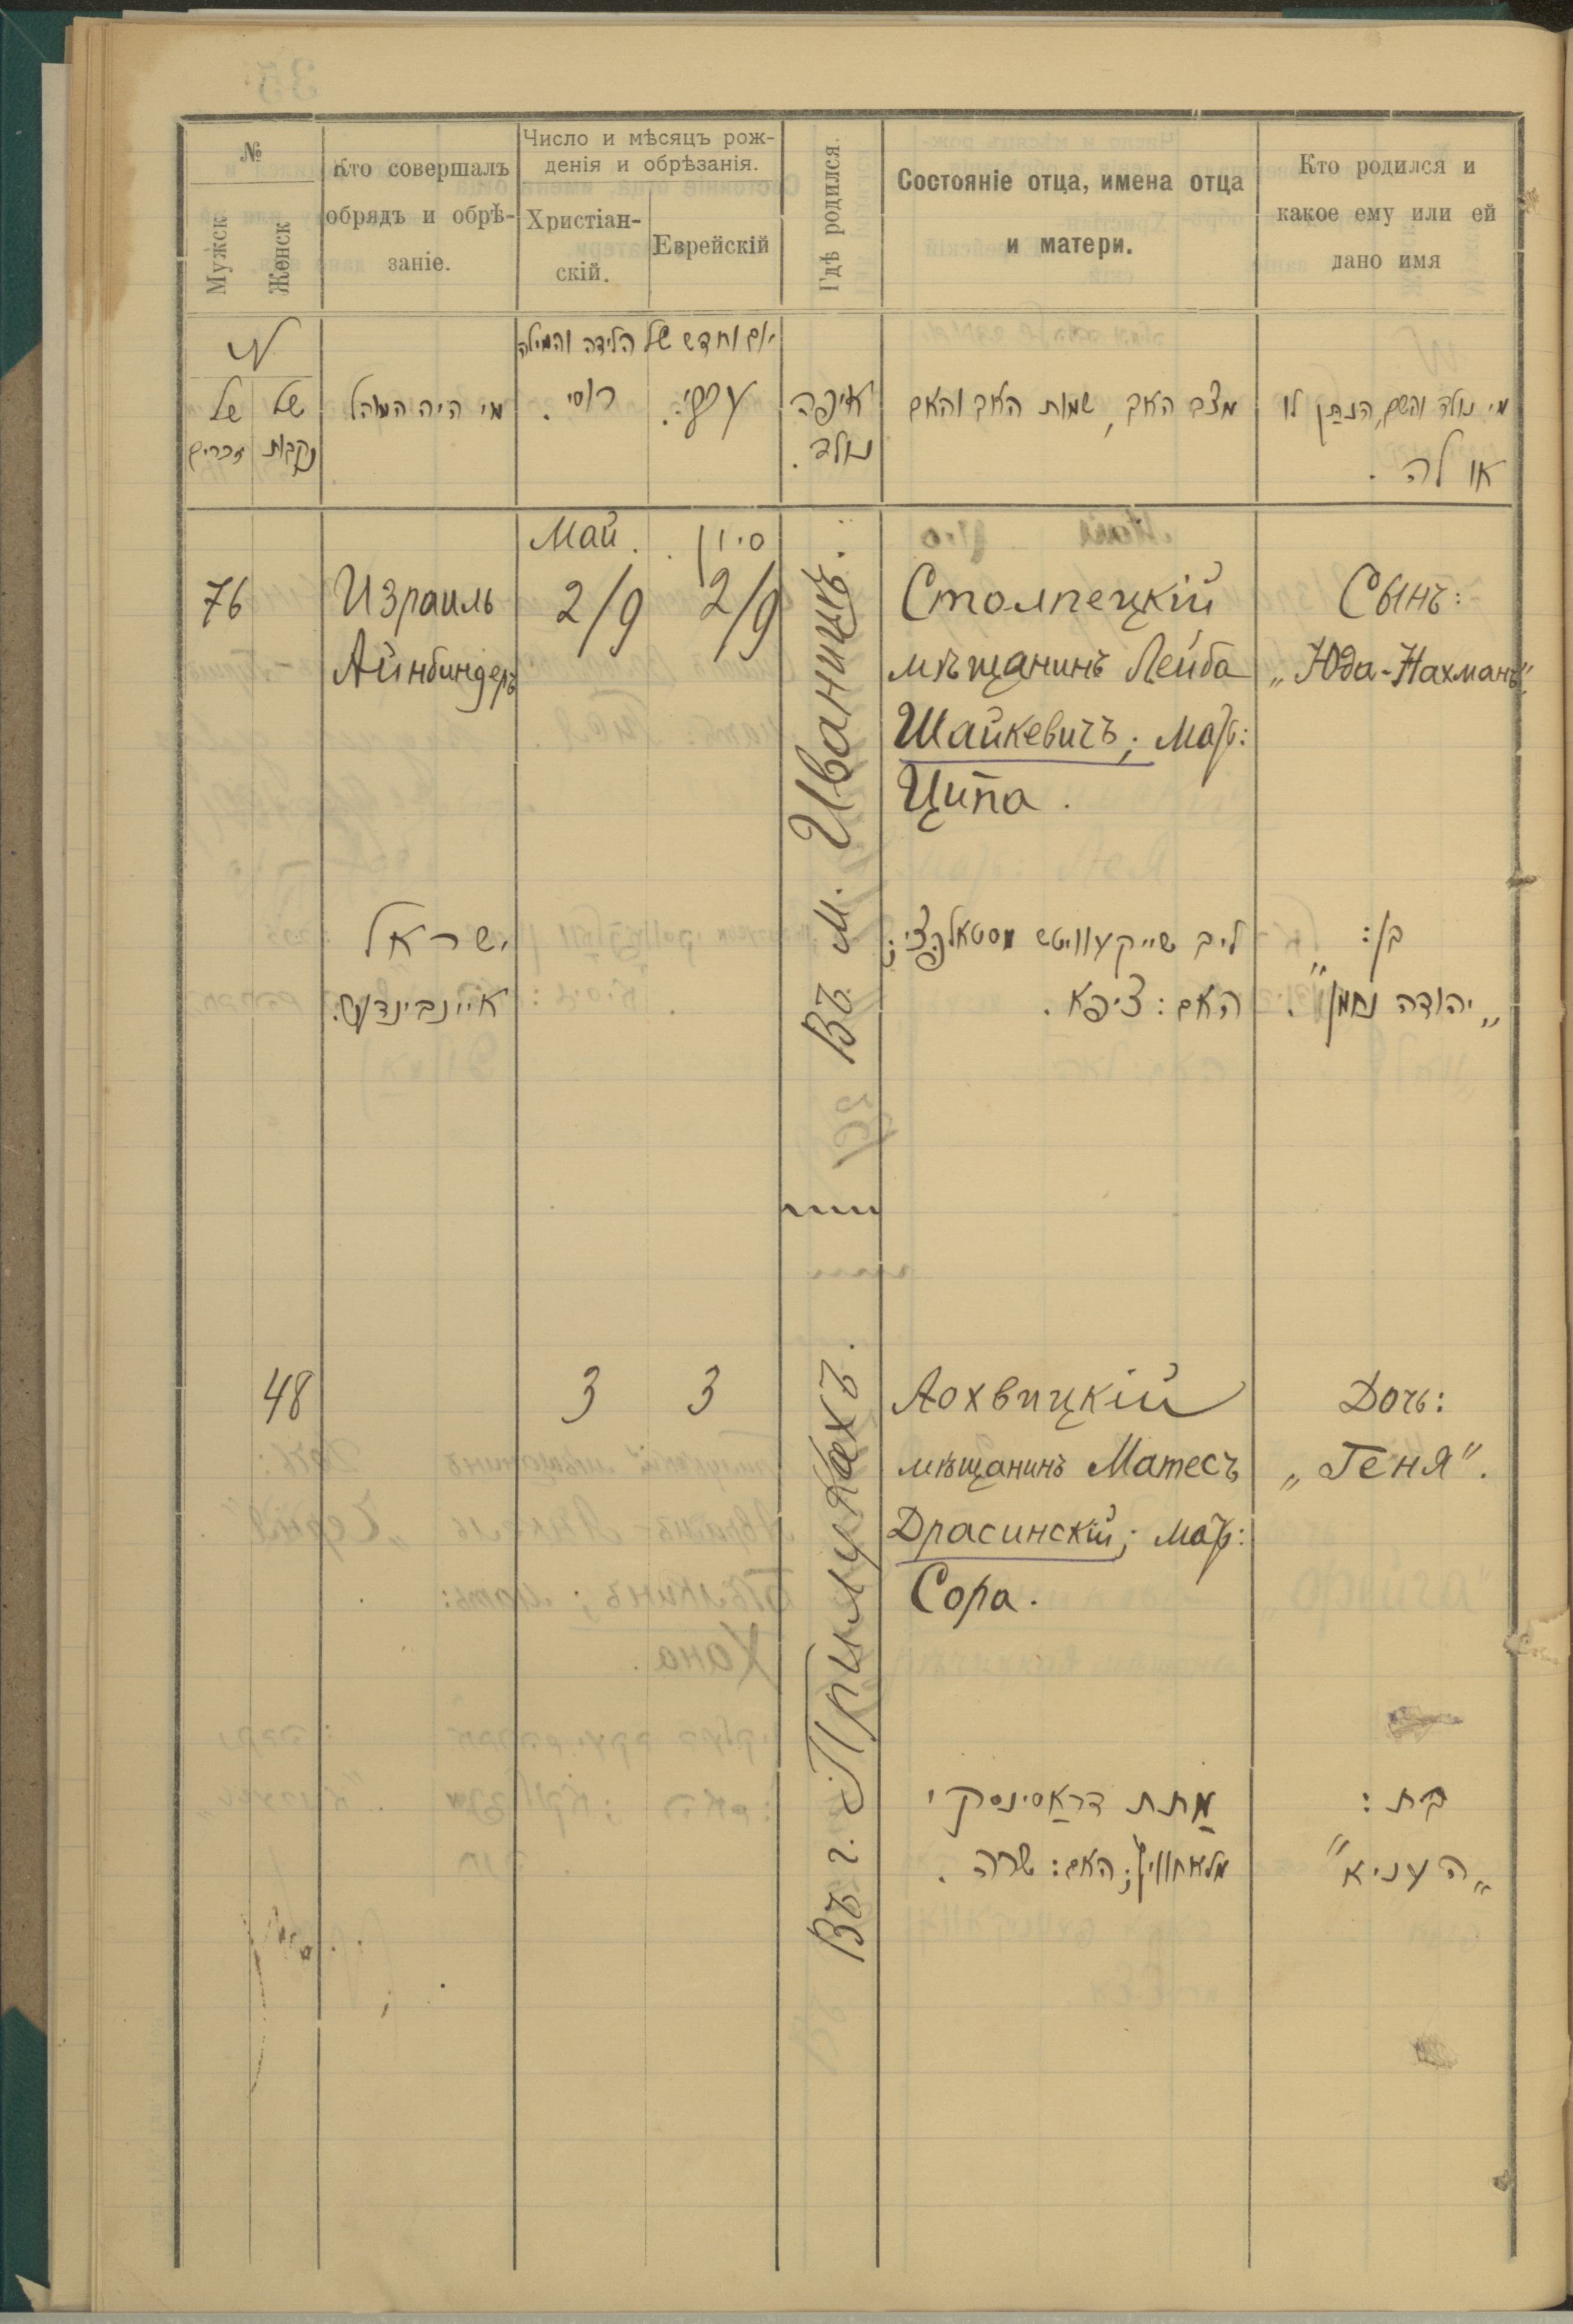 №
Мужск
Женск
Кто совершалъ
обрядъ и обрѣ-
заніе.
Число и мѣсяцъ рож-
денія и обрѣзанія.
Христіан-
скій.
Еврейскій
Гдѣ родился.
Состояніе отца, имена отца
и матери.
Кто родился и
какое ему или ей
дано имя
№
של
זכרים
של
נקבות
מי היה המוהל
יום וחדש של הלידה והמילה
רוסי.
עברי.
איפה
נולד.
מצב האב, שמות האב והאם
מי נולד והשם, הנתן לו
או לה.
Май.
סיון
76
Израиль
Айнбиндеръ
2/9
2/9
Въ м. Иваницѣ.
Столпецкій
мѣщанинъ Лейба
Шайкевичъ; мать:
Ципа.
Сынъ:
„Юда-Нахманъ“.
ישראל
איינבינדער.
ליב שייקעוויטש
האם: ציפא.
בן:
„יהודה נחמן“.
48
3
3
Въ г. Прилукахъ.
Лохвицкій
мѣщанинъ Матесъ
Драсинскій; мать:
Сора.
Дочь:
„Геня“.
מתת דראסינסקי
האם: שרה.
בת:
„העניא“